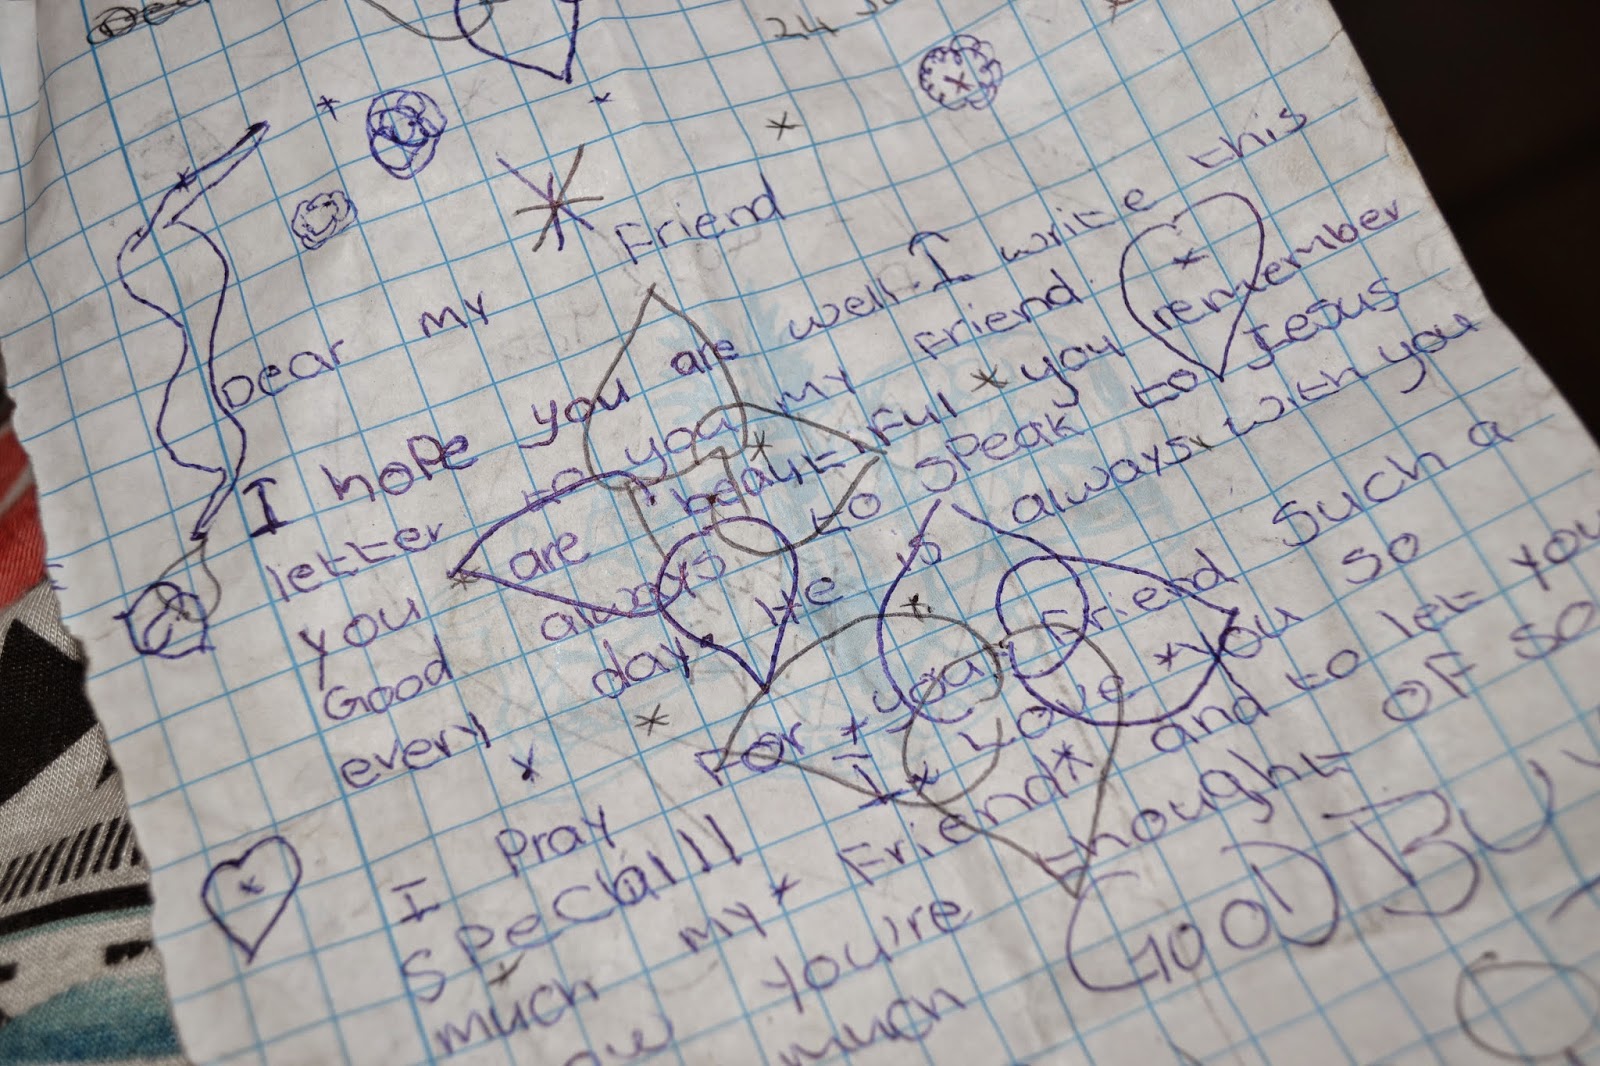 24
Dear my Friend
I hope you are well. I write this
letter to you my Friend.
you are beaytiFul * you remember
Good always to speak to Jesus
every day. He is always with you
I Pray For * you Friend such a
I * Love * you so
much my * Friend* and to let you
you're thought oF so
much
GOOD BUY